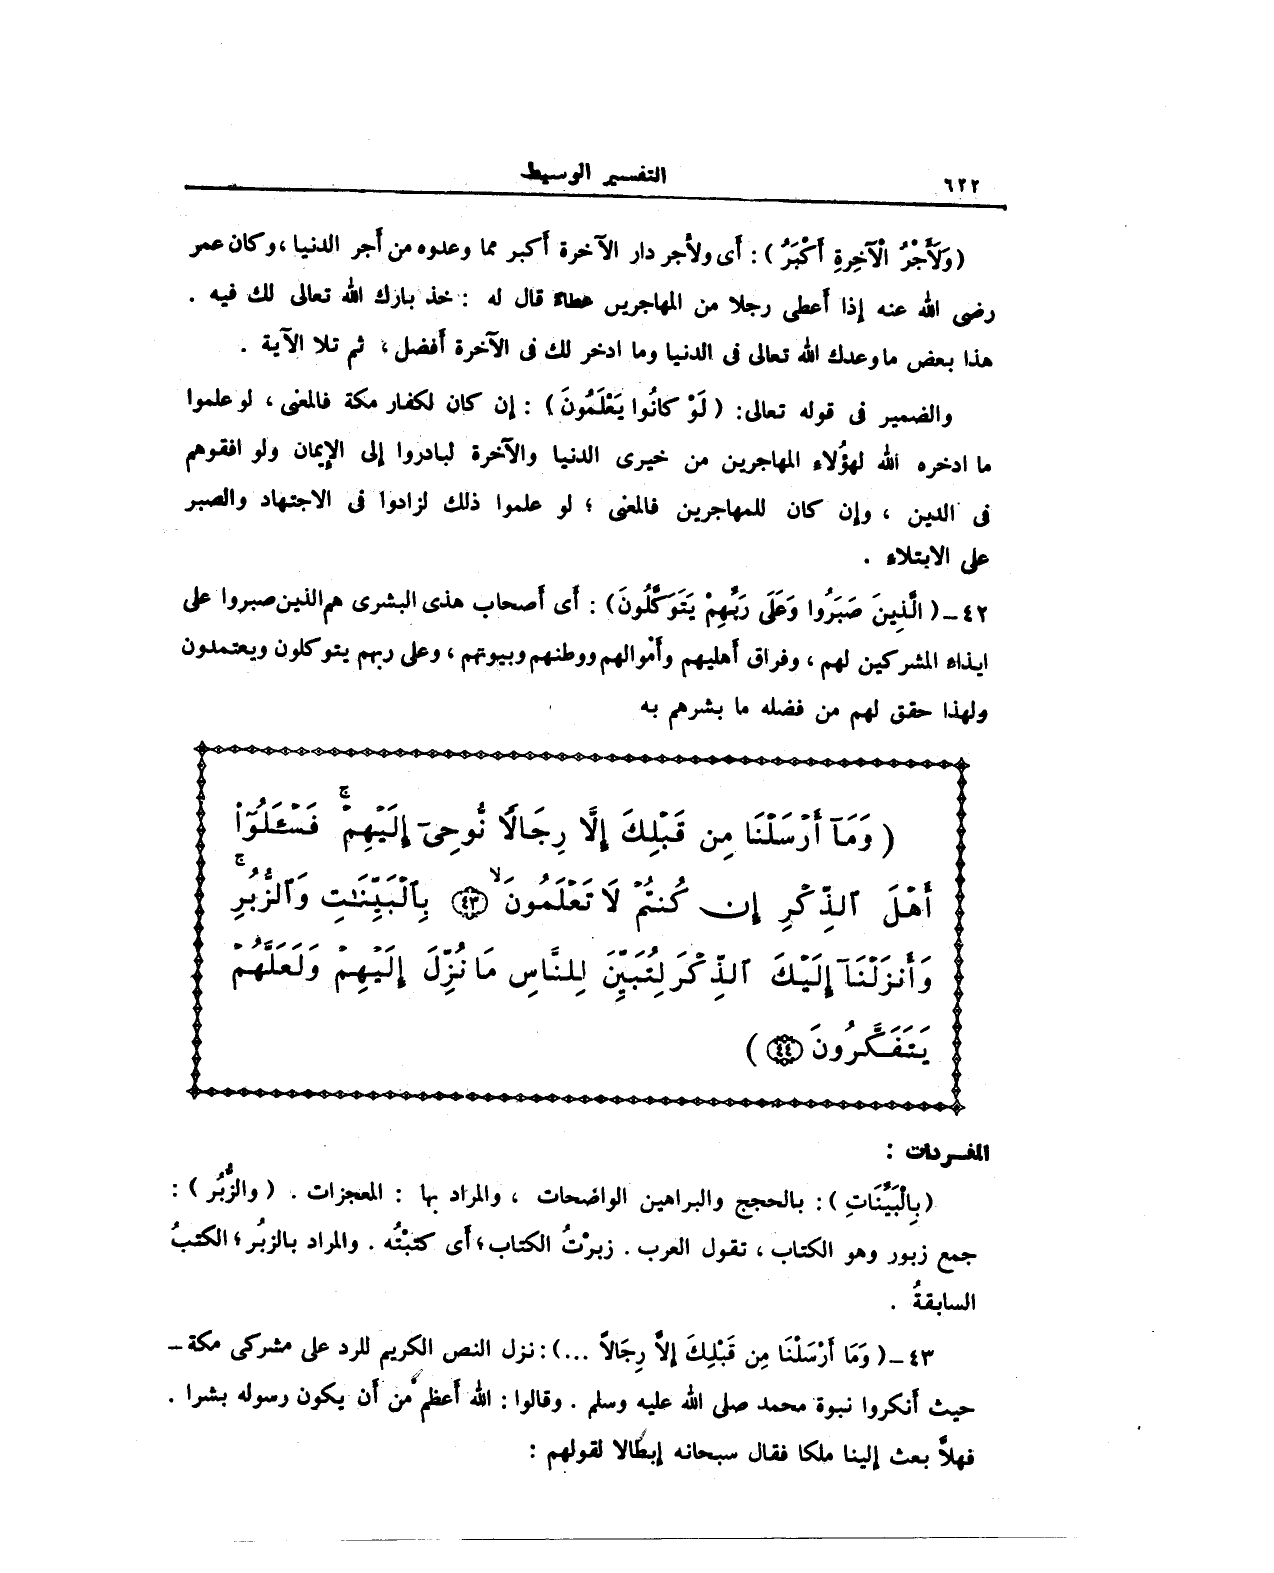 ٦٢٢
التفسير الوسيط
(وَلَأَجْرُ الْآخِرةِ أَكْبَرُ) : أى ولأجر دار الآخرة أكبر مما وعدوه من أجر الدنيا ، وكان عمر
رضى الله عنه إذا أعطى رجلا من المهاجرين عطاء قال له : خذ بارك الله تعالى لك فيه .
هذا بعض ماوعدك الله تعالى فى الدنيا وما ادخر لك فى الآخرة أفضل ، ثم تلا الآية .
والضمير فى قوله تعالى : (لَوْ كانُوا يَعْلَمُونَ) : إن كان لكفار مكة فالمعنى ، لو علموا
ما ادخره الله لهؤُلاء المهاجرين من خيرى الدنيا والآخرة لبادروا إلى الإيمان ولو افقوهم
فى الدين ، وإن كان للمهاجرين فالمعنى ؛ لو علموا ذلك لزادوا فى الاجتهاد والصبر
على الابتلاء .
٤٢ – (الَّذِينَ صَبَرُوا وَعَلَى رَبِّهِمْ يَتَوَكَّلُونَ) : أى أصحاب هذى البشرى هم الذين صبروا على
ايذاء المشركين لهم ، وفراق أهليهم وأموالهم ووطنهم وبيوتهم ، وعلى ربهم يتوكلون ويعتمدون
ولهذا حقق لهم من فضله ما بشرهم به
( وَمَآ أَرْسَلْنَا مِن قَبْلِكَ إِلَّا رِجَالًا نُّوحِىٓ إِلَيْهِمْ ۚ فَسْـَٔلُوٓا۟
أَهْلَ ٱلذِّكْرِ إِن كُنتُمْ لَا تَعْلَمُونَ ۙ ٤٣ بِٱلْبَيِّنَـٰتِ وَٱلزُّبُرِ ۗ
وَأَنزَلْنَآ إِلَيْكَ ٱلذِّكْرَ لِتُبَيِّنَ لِلنَّاسِ مَا نُزِّلَ إِلَيْهِمْ وَلَعَلَّهُمْ
يَتَفَكَّرُونَ ٤٤ )
المفردات :
(بِالْبَيِّنَاتِ) : بالحجج والبراهين الواضحات ، والمراد بها : المعجزات . (والزُّبُر) :
جمع زبور وهو الكتاب ، تقول العرب . زبرْتُ الكتاب ؛ أى كتبْتُه . والمراد بالزبُر ؛ الكتبُ
السابقةُ .
٤٣ – (وَمَا أَرْسَلْنَا مِن قَبْلِكَ إِلاَّ رِجَالاً ...) : نزل النص الكريم للرد على مشركى مكة –
حيث أنكروا نبوة محمد صلى الله عليه وسلم . وقالوا : الله أعظم من أن يكون رسوله بشرا .
فهلاَّ بعث إلينا ملكا فقال سبحانه إبطالا لقولهم :